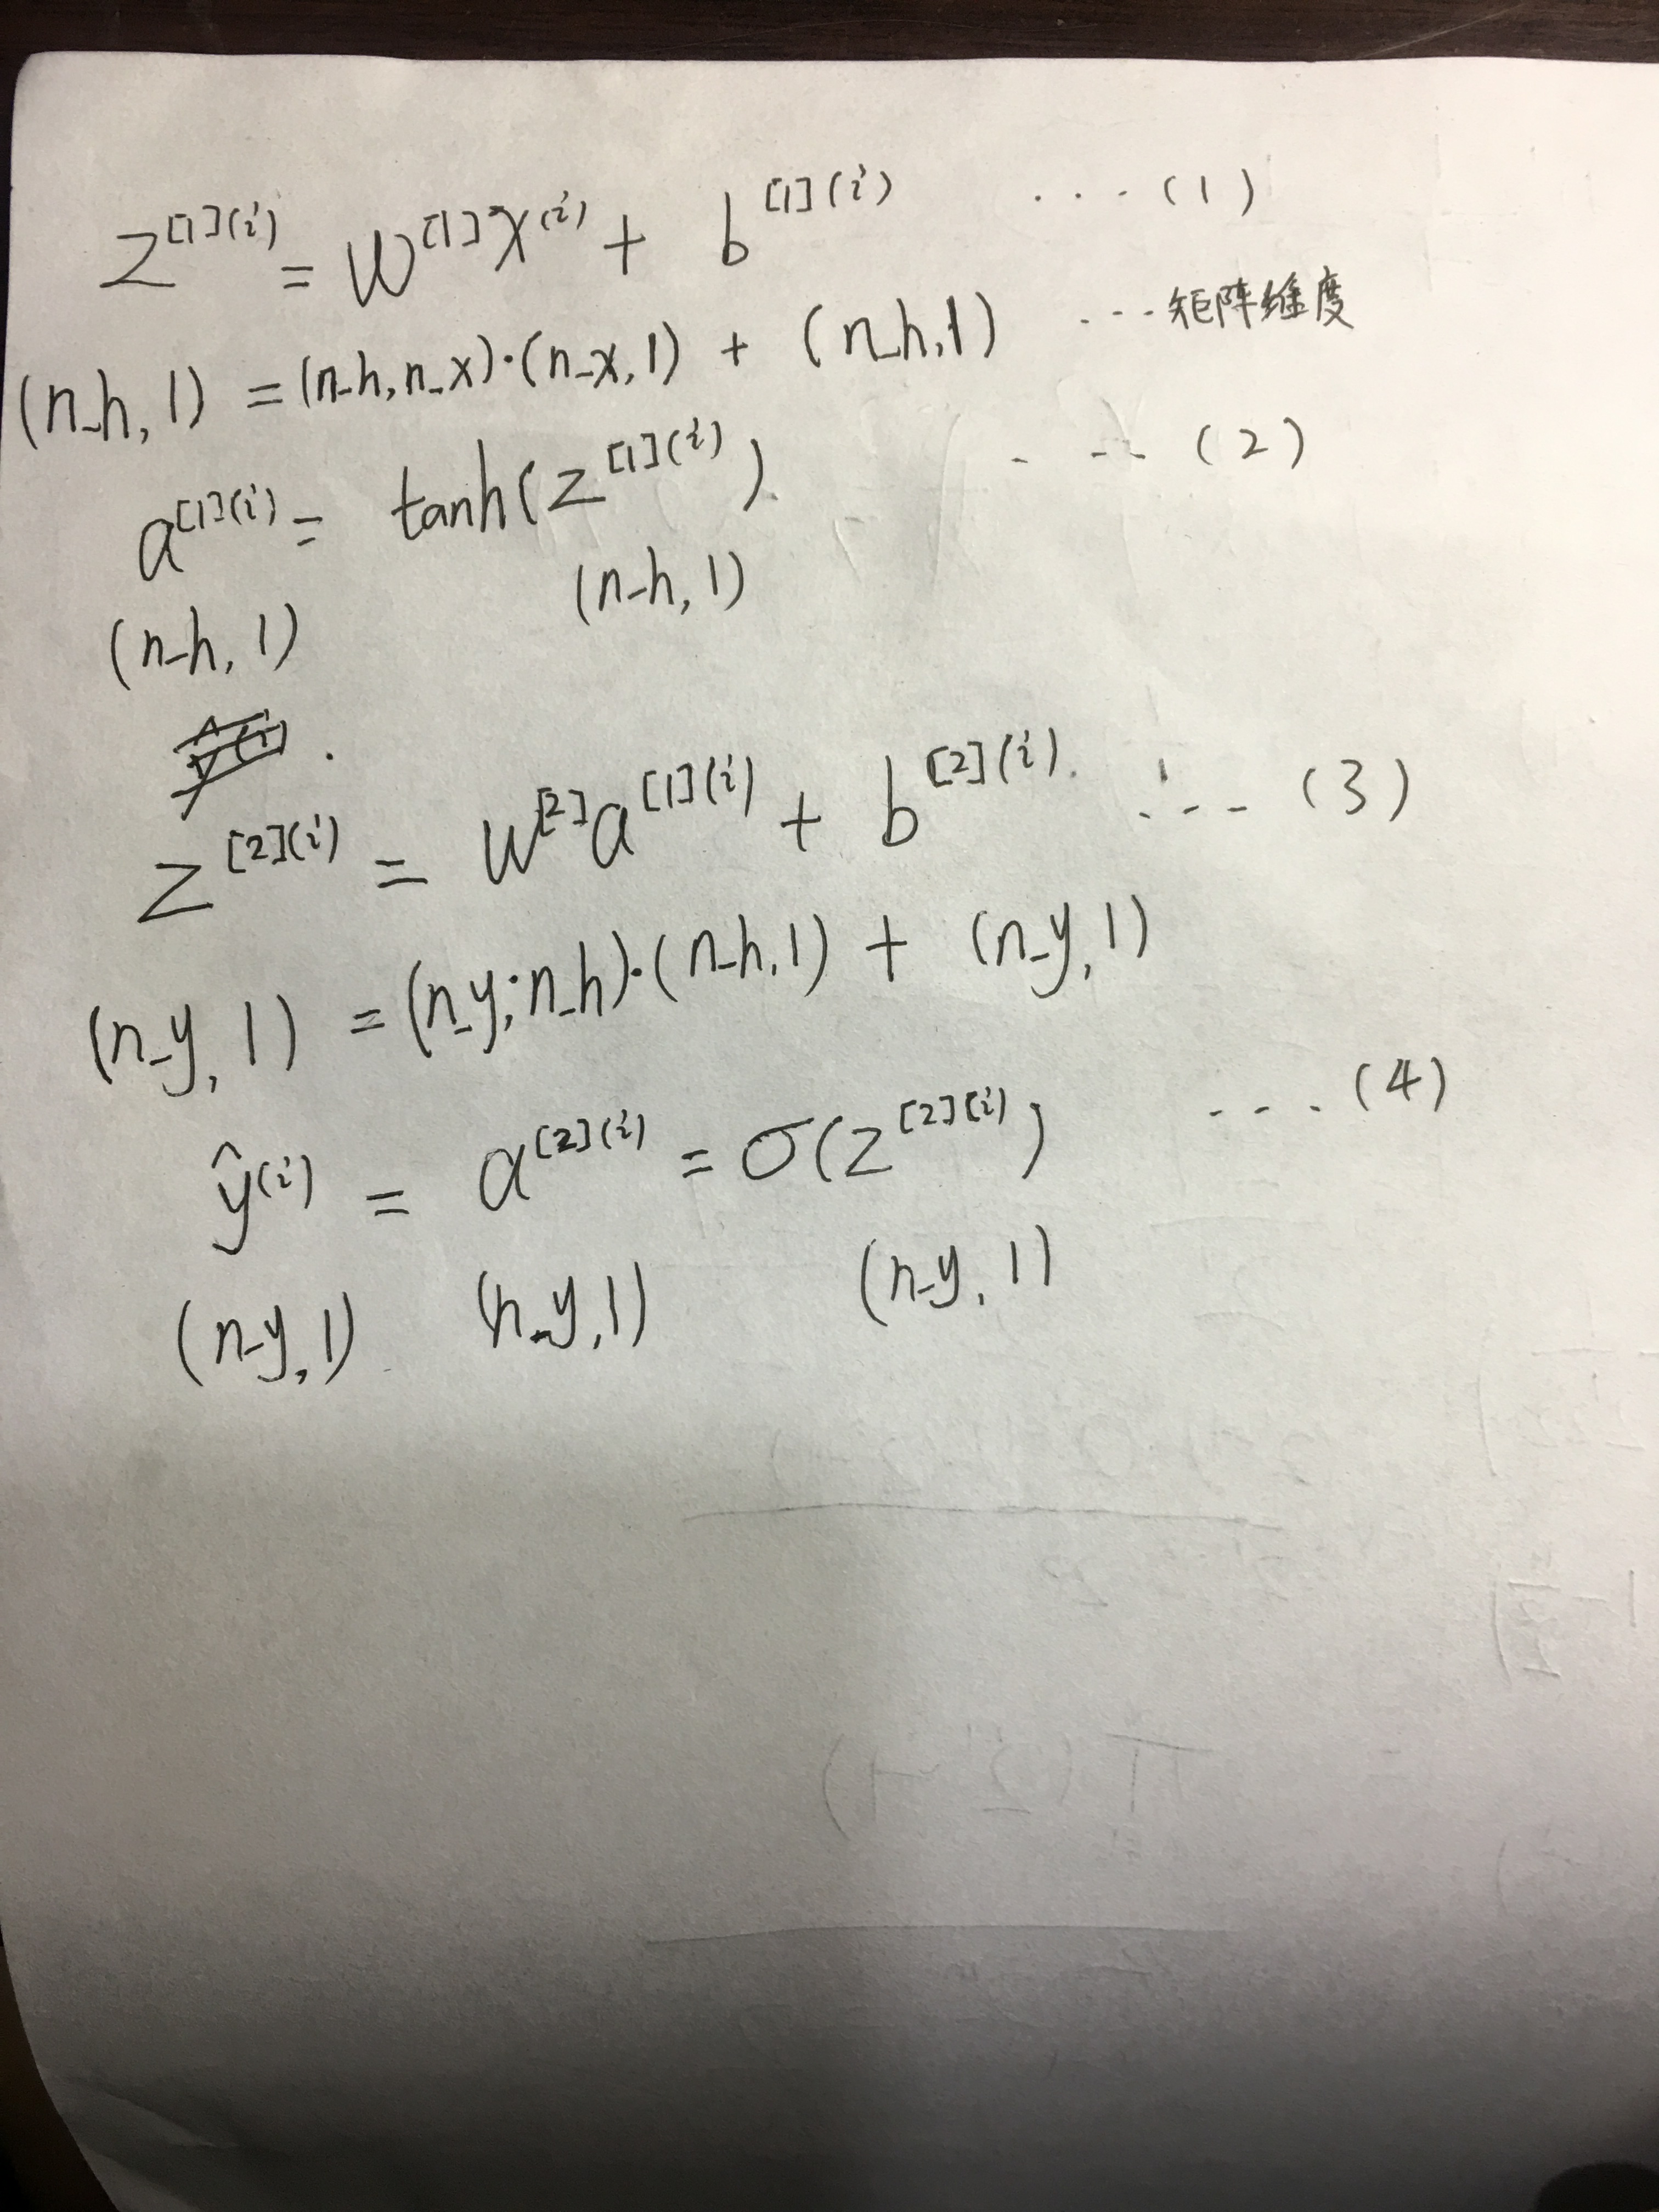 z^[1](i) = W^[1]x^(i) + b^[1](i) ...(1)
(n_h, 1) = (n_h, n_x)·(n_x, 1) + (n_h, 1) ...矩阵维度
a^[1](i) = tanh(z^[1](i)) ...(2)
(n_h, 1) (n_h, 1)
z^[2](i) = W^[2]a^[1](i) + b^[2](i) ...(3)
(n_y, 1) = (n_y, n_h)·(n_h, 1) + (n_y, 1)
ŷ^(i) = a^[2](i) = σ(z^[2](i)) ...(4)
(n_y, 1) (n_y, 1) (n_y, 1)